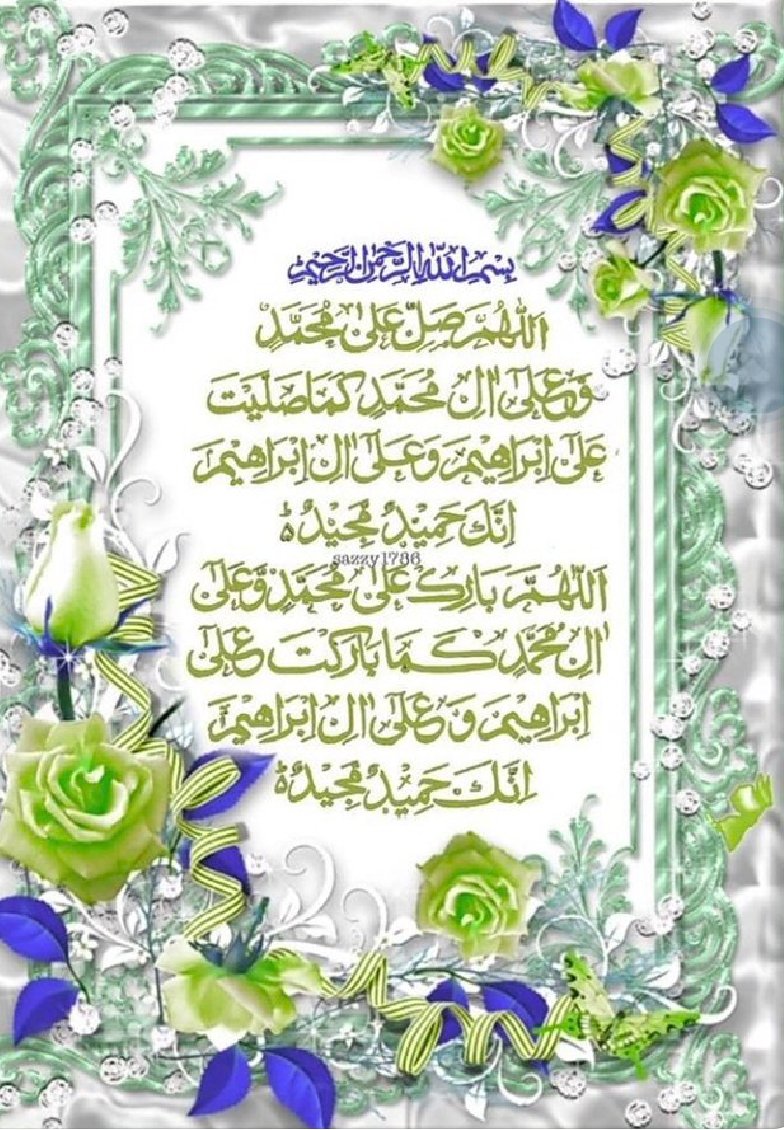 بِسْمِ اللّٰهِ الرَّحْمٰنِ الرَّحِيْمِ
اَللّٰهُمَّ صَلِّ عَلٰى مُحَمَّدٍ
وَّعَلٰٓى اٰلِ مُحَمَّدٍ كَمَا صَلَّيْتَ
عَلٰٓى اِبْرَاهِيْمَ وَعَلٰٓى اٰلِ اِبْرَاهِيْمَ
اِنَّكَ حَمِيْدٌ مَّجِيْدٌ ؕ
sazzy1786
اَللّٰهُمَّ بَارِكْ عَلٰى مُحَمَّدٍ وَّعَلٰٓى
اٰلِ مُحَمَّدٍ كَمَا بَارَكْتَ عَلٰٓى
اِبْرَاهِيْمَ وَعَلٰٓى اٰلِ اِبْرَاهِيْمَ
اِنَّكَ حَمِيْدٌ مَّجِيْدٌ ؕ